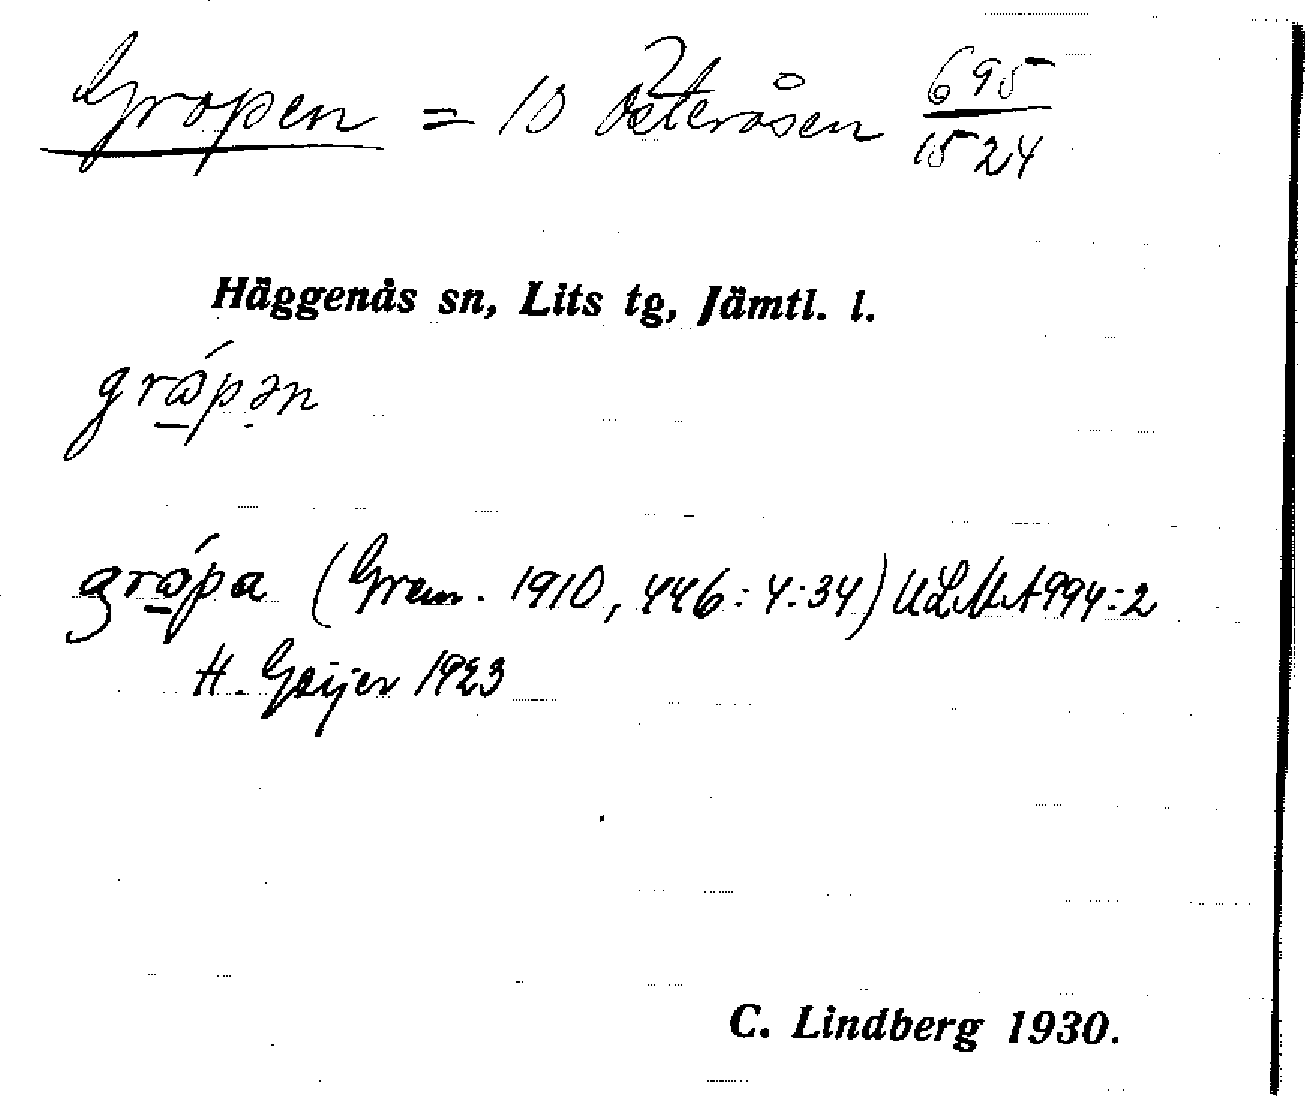 Gropen = 10 Österåsen 695/1524
Häggenås sn, Lits tg, Jämtl. l.
grǻpən
grǻpa (Gram. 1910, 446:4:34) ULMA 994:2
H. Geijer 1923
C. Lindberg 1930.